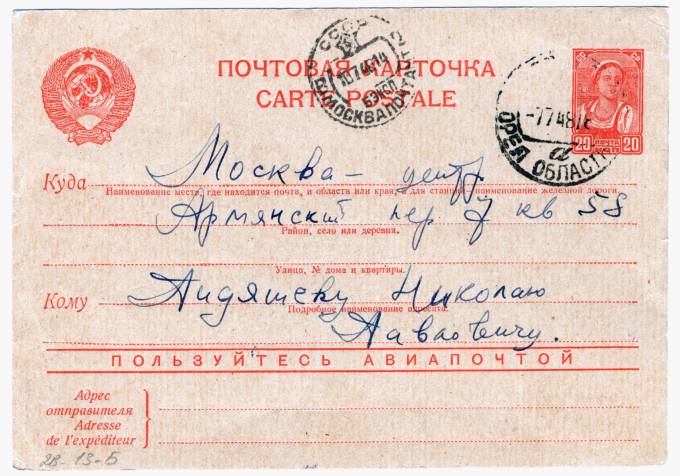 ПОЧТОВАЯ КАРТОЧКА
CARTE POSTALE
СССР
МОСКВА ПОЧТАМТ
10 7 48 14
ЭКСП
СС СР
ПОЧТА
20 20
-7 7 48
ОРЕЛ ОБЛАСТН
а
Куда Москва - центр
Наименование места, где находится почта, и области или края, а для станций - наименование железной дороги.
Армянский пер 7 кв 58
Район, село или деревня.
Улица, № дома и квартиры.
Кому Андяшеву Николаю
Подробное наименование адресата.
Павловичу.
ПОЛЬЗУЙТЕСЬ АВИАПОЧТОЙ
Адрес
отправителя
Adresse
de l'expéditeur
28-13-Б